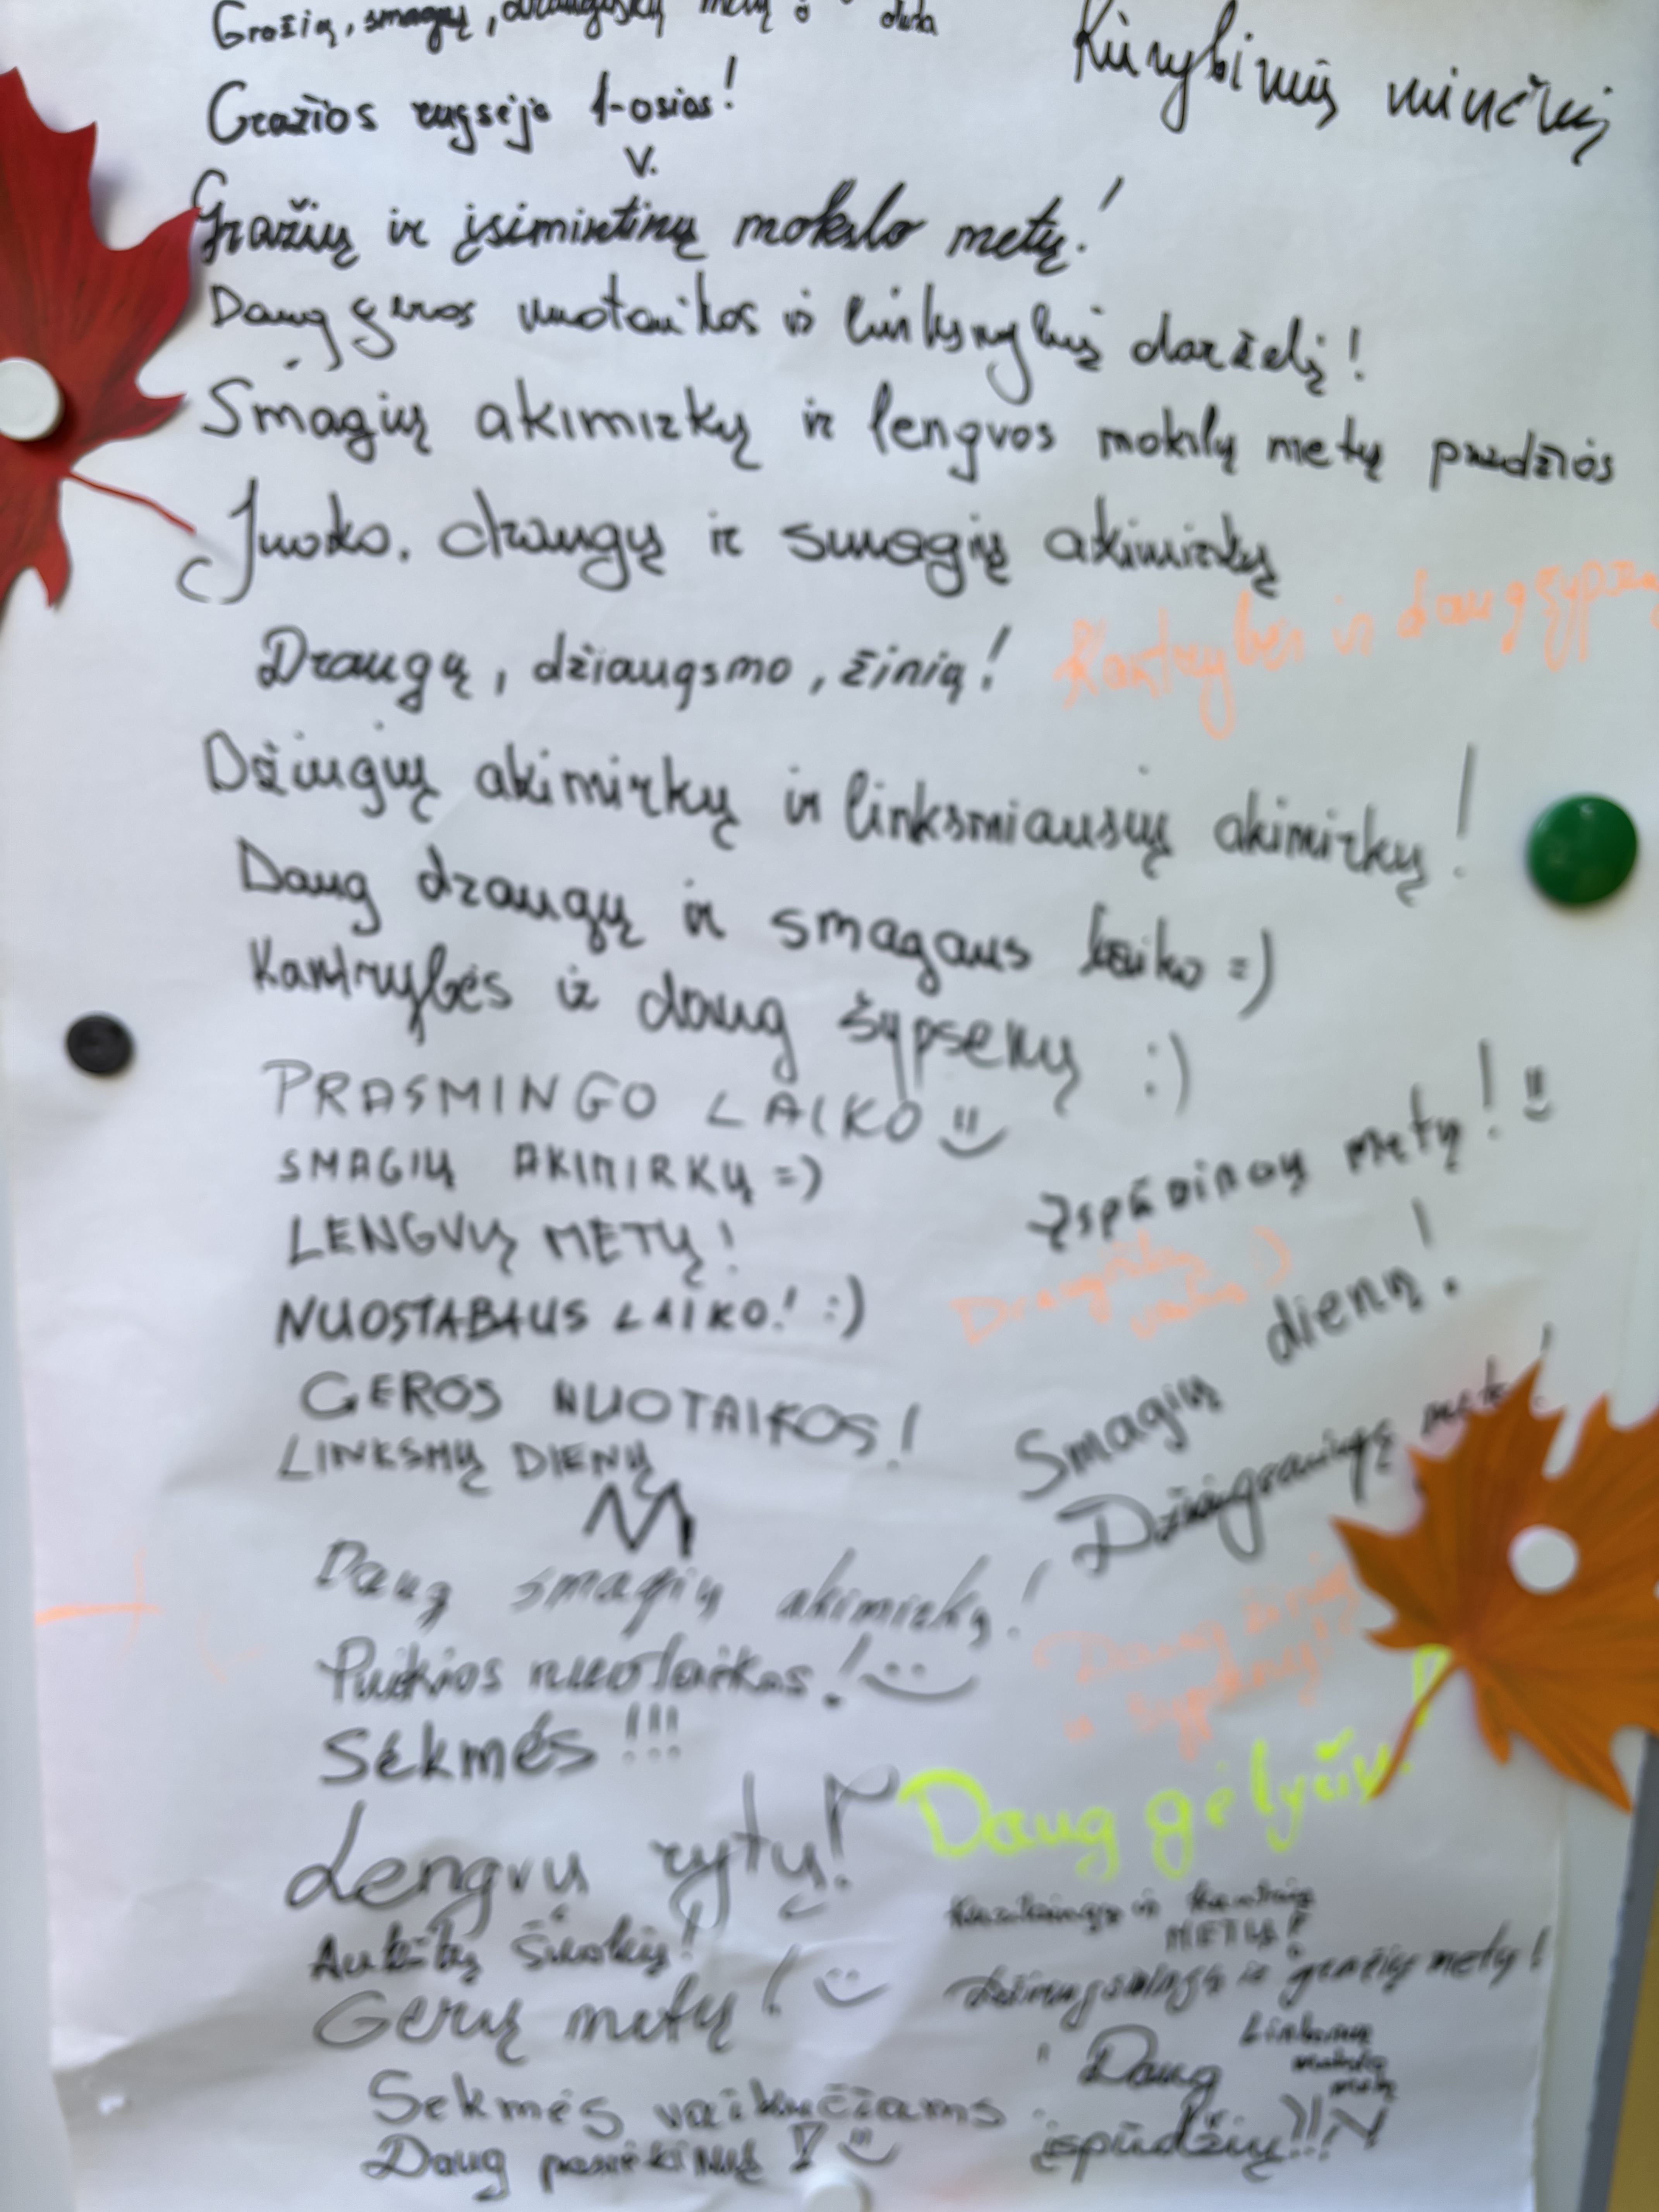 Gražių, smagių, draugiškų metų
Kūrybinių minčių
Gražios rugsėjo 1-osios!
V.
Gražių ir įsimintinų mokslo metų!
Daug geros nuotaikos ir linksmybių darželį!
Smagių akimirkų ir lengvos mokslų metų pradžios
Juoko, draugų ir smagių akimirkų
Draugų, džiaugsmo, žinių!
Kantrybės ir daug šypsenų
Džiugių akimirkų ir linksmiausių akimirkų!
Daug draugų ir smagaus laiko =)
Kantrybės ir daug šypsenų :)
PRASMINGO LAIKO
SMAGIŲ AKIMIRKŲ =)
Įspūdingų metų!
LENGVŲ METŲ!
NUOSTABAUS LAIKO! :)
Smagių dienų!
GEROS NUOTAIKOS!
LINKSMŲ DIENŲ
Daug smagių akimirkų!
Puikios nuotaikos!
Sėkmės!!!
Daug gėlyčių!
Lengvų rytų!
METŲ!
Džiaugsmingų ir gražių metų!
Gerų metų!
Linksmų
mokslo
metų
Sėkmės vaikučiams
Daug
įspūdžių!!!
Daug pasiekimų!